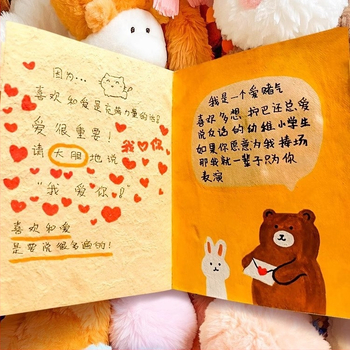 因为...
喜欢和爱是充满力量的话!
爱很重要!
我 你
请大胆地说
"我爱你!"
喜欢和爱
是要说很多遍的!
我是一个爱赌气
喜欢多想 拧巴还总爱
说反话的幼稚小学生
如果你愿意为我捧场
那我就一辈子只为你
表演